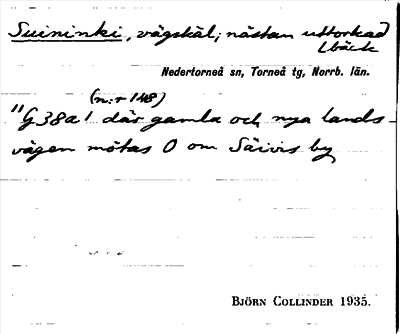 Suininki, vägskäl; nästan uttorkad
bäck
Nedertorneå sn, Torneå tg, Norrb. län.
(n:r 148)
"G38a" där gamla och nya lands-
vägen mötas O om Säivis by
BJÖRN COLLINDER 1935.